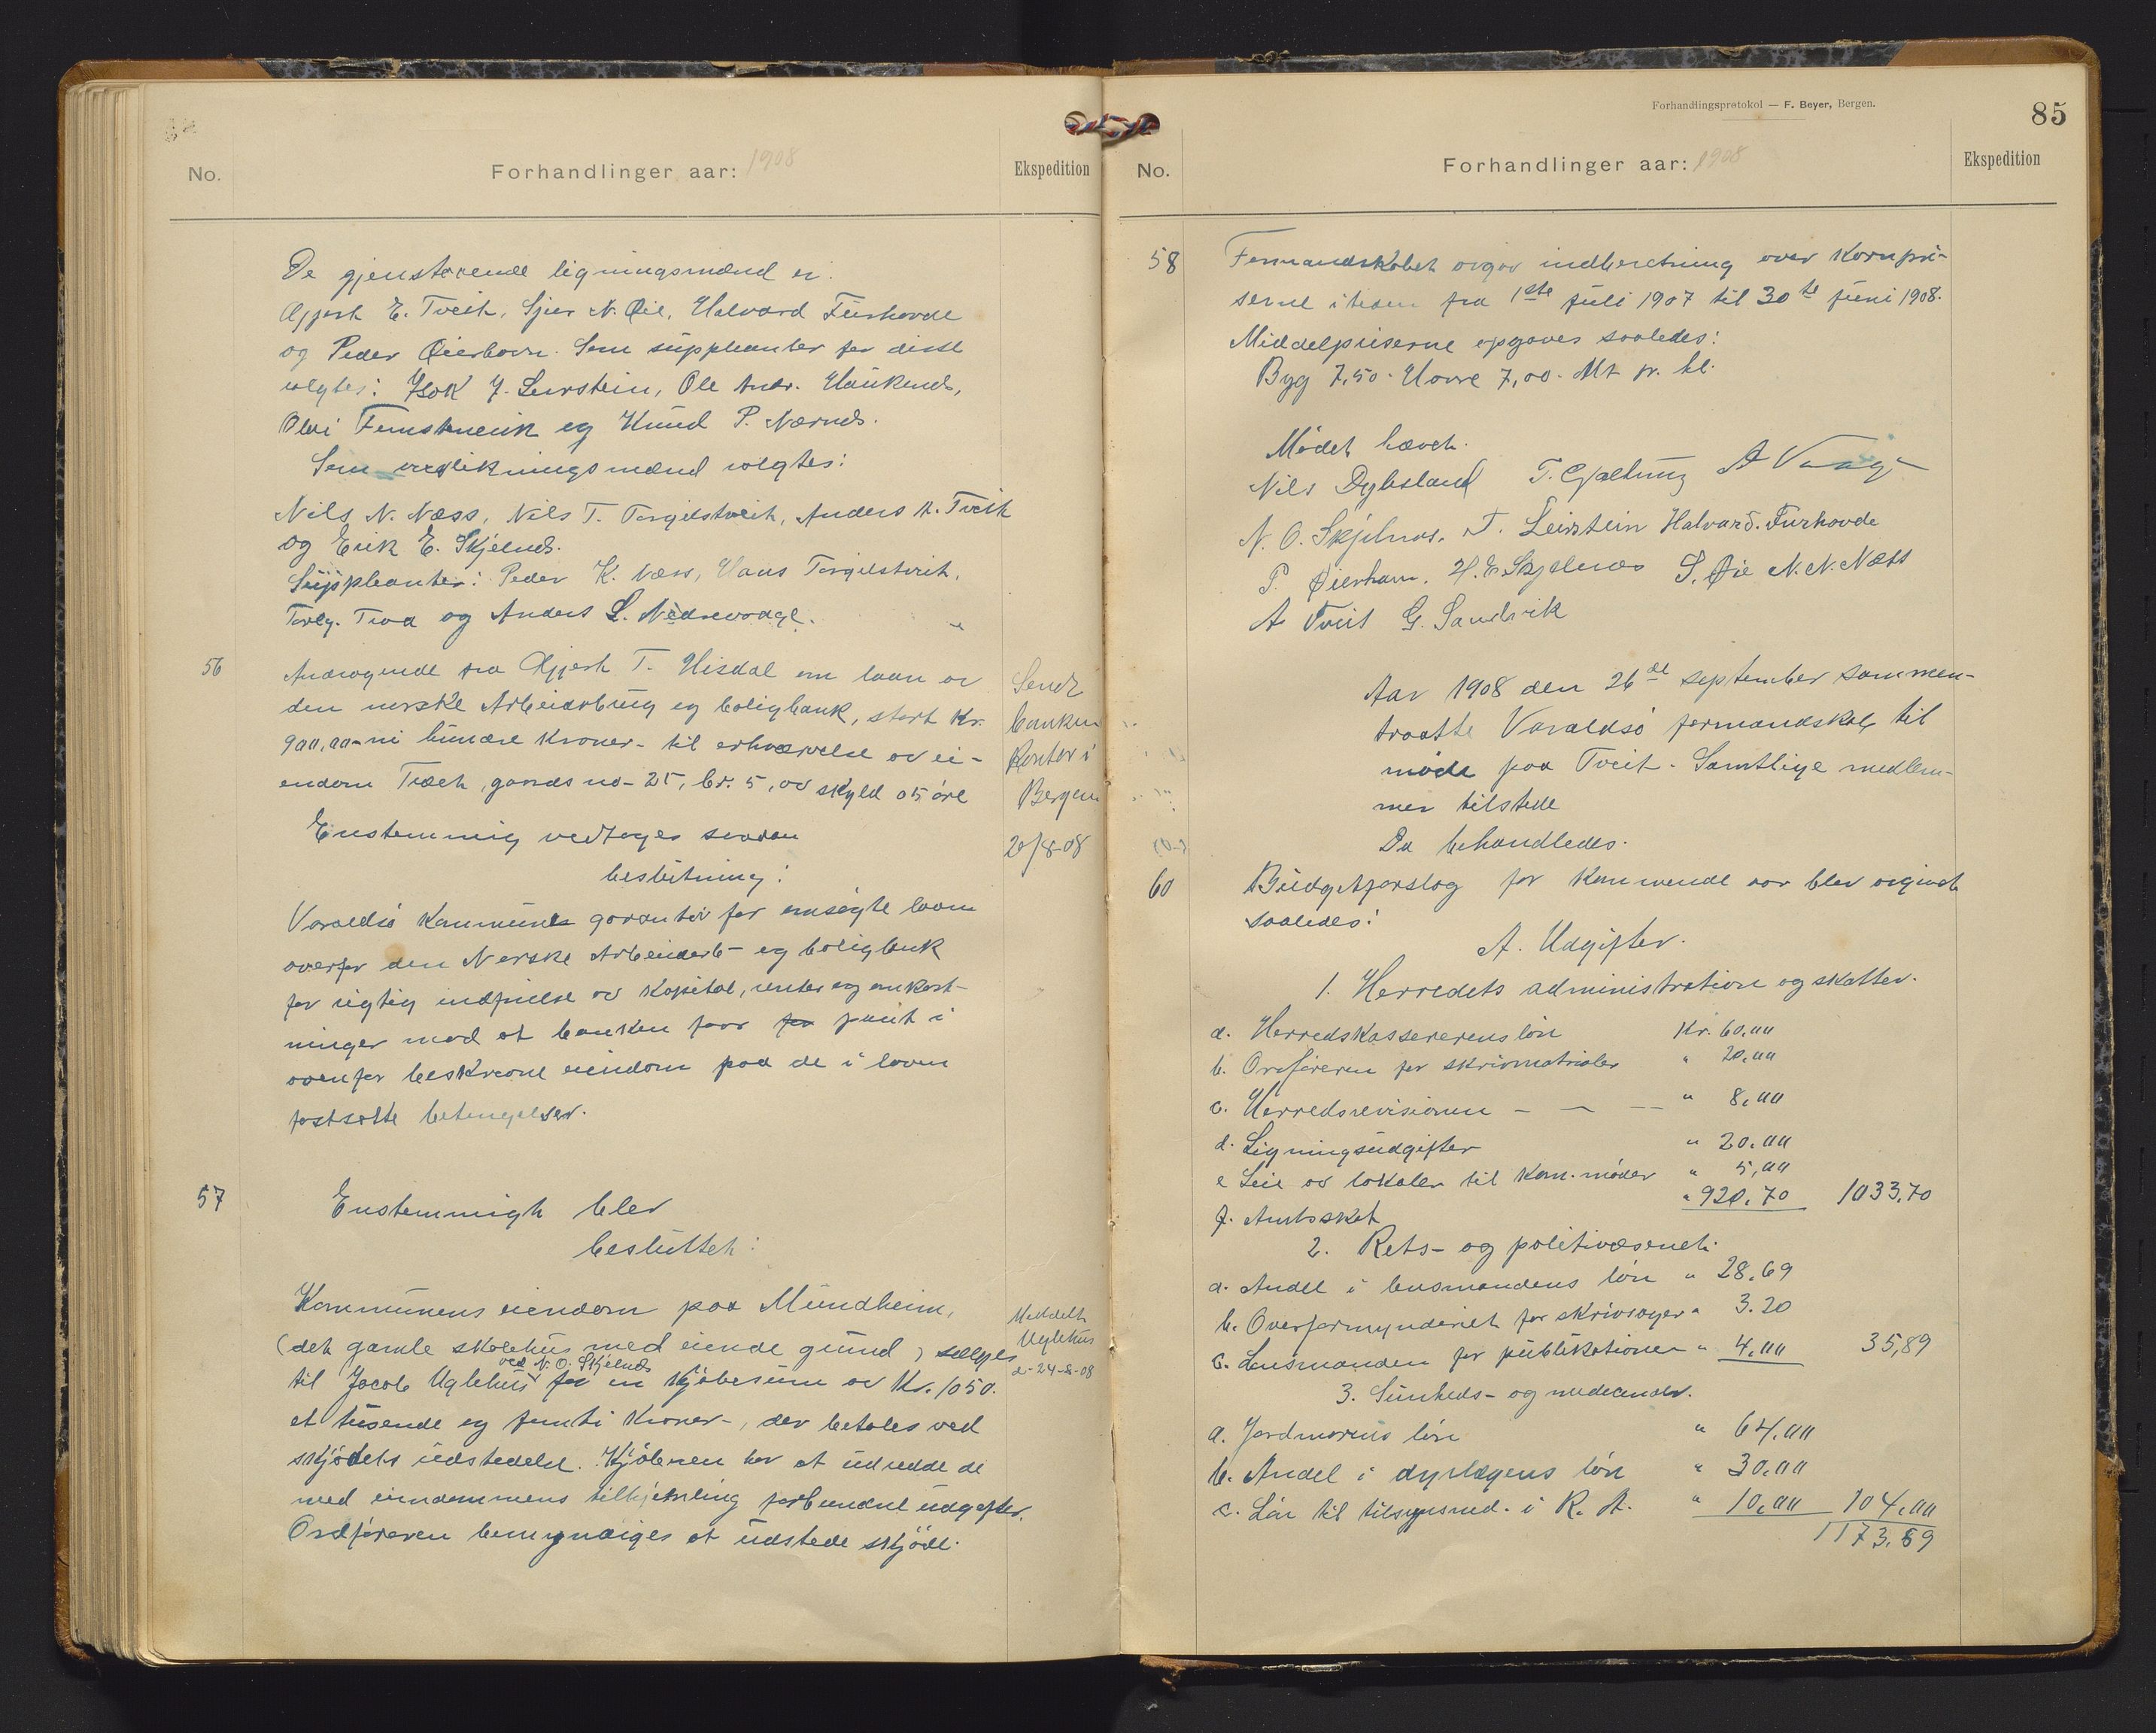 No.
Forhandlinger aar: 1908
Ekspedition
De gjenstaaende ligningsmænd er:
Gjert E. Tveit, Sjur N. Øie, Halvard Furhovde
og Peder Øierhavn. Som suppleanter for disse
valgtes: Isak J. Leirstein, Ole Andr. Haukenæs,
Olai Femsteinevik og Knud P. Nærnæs.
Som overlikningsmænd valgtes:
Nils N. Næss, Nils T. Torgilstveit, Anders A. Tveit
og Erik E. Skjelnæs.
Suppleanter: Peder K. Næss, Hans Torgilstveit,
Torleg. Tvea og Anders L. Nedrevaage.
56
Andragende fra Gjert T. Hisdal om laan av
den norske Arbeiderbrug og boligbank, stort kr.
900,00 - ni hundre kroner - til erhvervelse av ei-
endom Træet, gaards no - 25, br. 5, av skyld 05 øre
Enstemmig vedtoges saadan
beslutning:
Varaldsø kommune garanter for ansøgte laan
overfor den Norske Arbeiderb- og boligbank
for rigtig indfrielse av kapital, renter og omkost-
ninger mod at banken faar for pant i
ovenfor beskrevne eiendom paa de i loven
fastsatte betingelser.
Sendt
banken
Kontor i
Bergen
20/8-08
57
Enstemmigt blev
besluttet:
Kommunens eiendom paa Mundheim,
(det gamle skolehus med eiende grund) sælges
ved N. O. Skjelnæs
til Jacob Uglehus for en kjøbesum av Kr. 1050.
et tusende og femti kroner -, der betales ved
skjødets utstedelse. Kjøberen har at udrede de
med eiendommens tilhjemling forbundne udgifter.
Ordføreren bemyndiges at udstede skjøde.
Meddelt
Uglehus
d. 24-8-08
Forhandlingsprotokol — F. Beyer, Bergen.
85
No.
Forhandlinger aar: 1908
Ekspedition
58
Formandskabet avgav indberetning over kornpri-
serne i tiden fra 1ste juli 1907 til 30te juni 1908.
Middelpriserne opgaves saaledes:
Byg 7,50 - Havre 7,00. Alt pr. hl.
Mødet hævet.
Nils Dybsland T. Gjeltung A Vaage
N. O. Skjelnes. J. Leirstein Halvard. Furhovde
P. Øierhavn. H. E. Skjelnæs S. Øie N. N. Næss
A Tveit G. Sandvik
Aar 1908 den 26de september sammen-
traatte Varaldsø formandskab til
møde paa Tveit. Samtlige medlem-
mer tilstede
Da behandledes.
60
Budgetforslag for kommende aar blev avgivet
saaledes:
A. Udgifter.
1. Herredets administration og skatter.
a. Herredskassererens løn Kr. 60,00
b. Ordføreren for skrivmatrialer " 20,00
c. Herredsrevisionen - - - " 8,00
d. Ligningsudgifter " 20,00
e Leie av lokaler til kom. møder " 5,00
f. Amtsskat " 920,70 1033,70
2. Rets- og politivæsenet.
a. Andel i lensmandens løn " 28.69
b. Overformynderiet for skrivsager " 3.20
c. Lensmanden for publikationer " 4,00 35,89
3. Sunheds- og medicinalv.
a. Jordmorens løn " 64,00
b. Andel i dyrlægens løn " 30,00
c. Løn til tilsynsmd. i R. A. " 10,00 104,00
1173.59